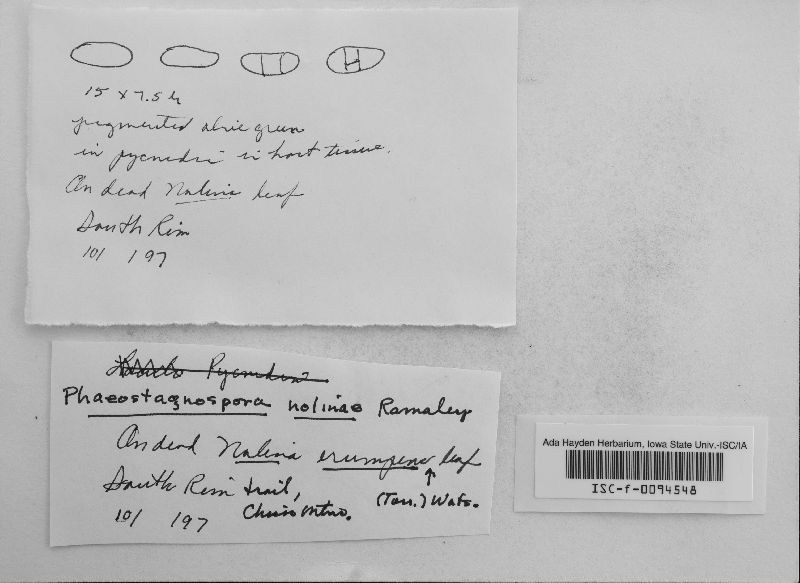 15 x 7.5 µ
pigmented olive green
in pycnidia in host tissue.
On dead Nolina leaf
South Rim
10/ /97
Pycnidia
Phaeostagnospora nolinae Ramaley
On dead Nolina erumpens leaf
(Torr.) Wats.
South Rim trail,
Chisos Mtns.
10/ /97
Ada Hayden Herbarium, Iowa State Univ.-ISC/IA
ISC-f-0094548